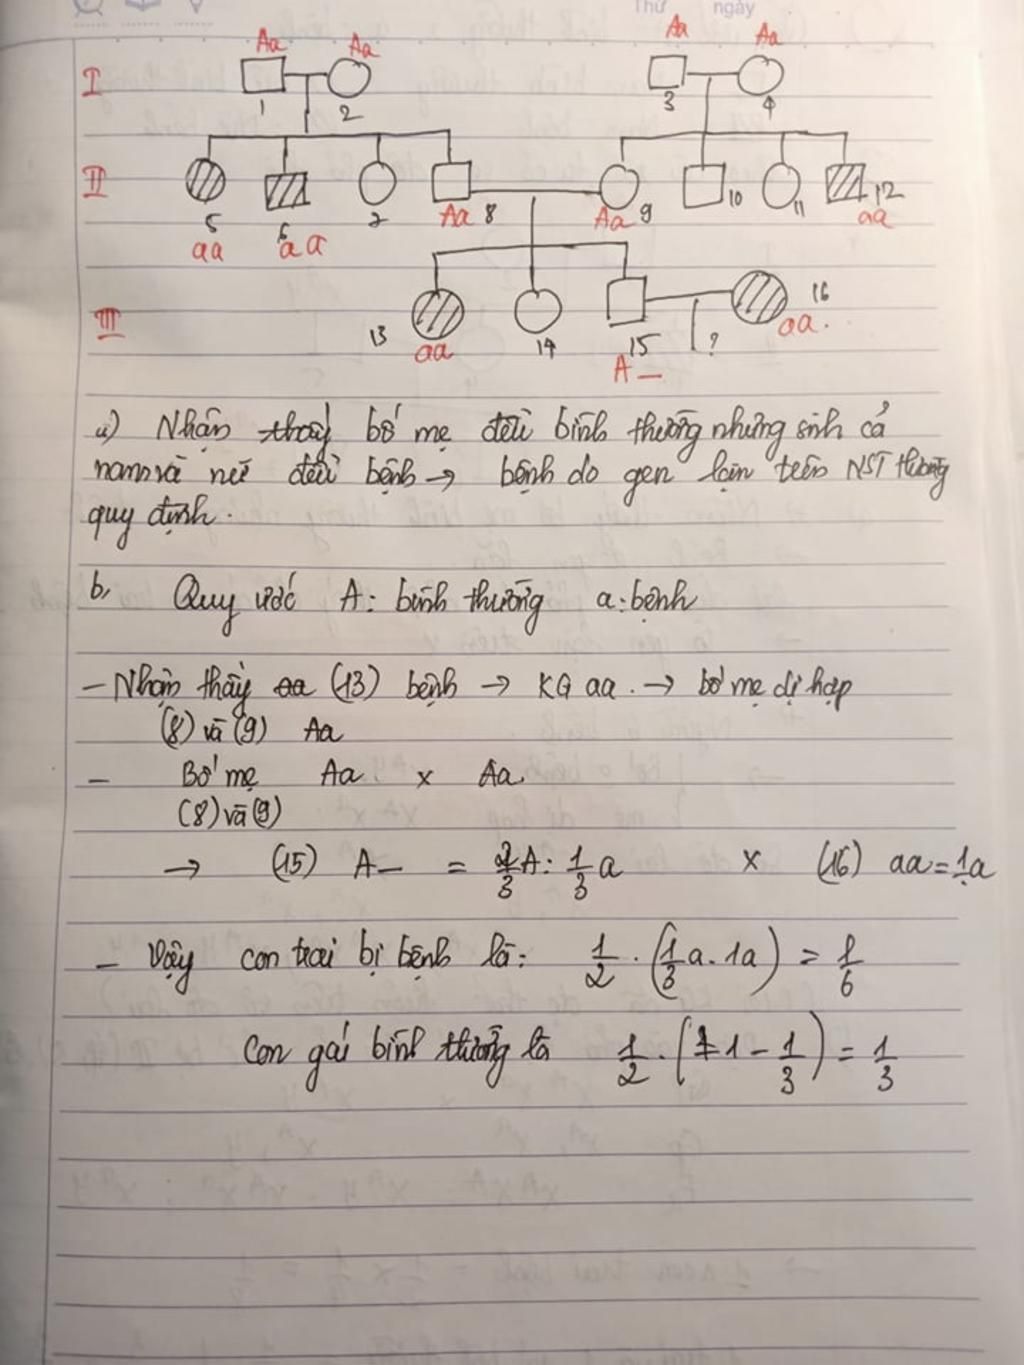 Thứ ngày
I Aa Aa Aa Aa
1 2 3 4
II
5 6 7 Aa 8 Aa 9 10 11 12
aa aa aa
III 13 14 15 ? 16
aa A_ aa.
a) Nhận thấy bố mẹ đều bình thường nhưng sinh cả
nam và nữ đều bệnh → bệnh do gen lặn trên NST thường
quy định.
b, Quy ước A: bình thường a: bệnh
- Nhận thấy aa (13) bệnh → KG aa. → bố mẹ dị hợp
(8) và (9) Aa
- Bố mẹ Aa x Aa
(8) và (9)
→ (15) A- = 2/3 A : 1/3 a x (16) aa = 1a
- Vậy con trai bị bệnh là: 1/2 . (1/3 a . 1a) = 1/6
Con gái bình thường là 1/2 . (1 - 1/3) = 1/3